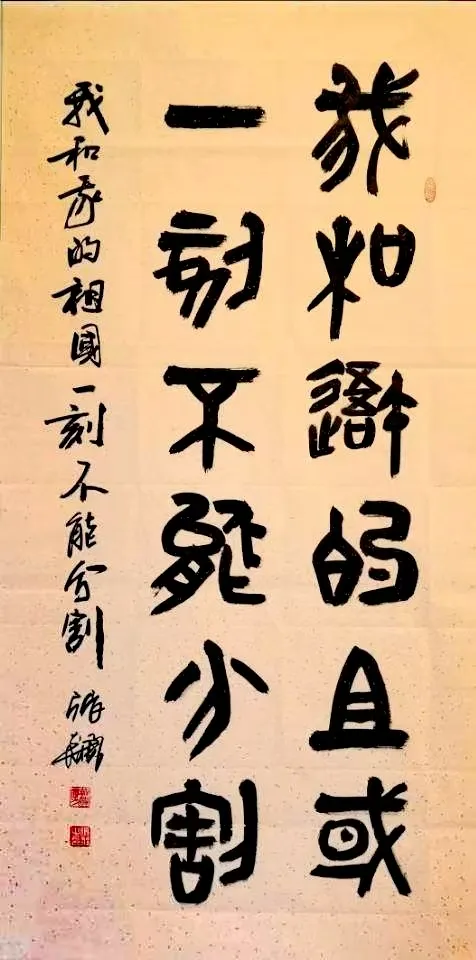 我和䢩的且或
一刻不能分割
我和我的祖國一刻不能分割